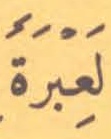 لَعِبْرَةً